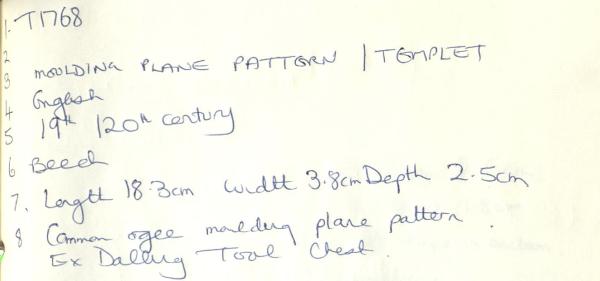 1. T1768
2
3 MOULDING PLANE PATTERN / TEMPLET
4 English
5 19th / 20th century
6 Beech
7. Length 18.3cm Width 3.8cm Depth 2.5cm
8 Common ogee moulding plane pattern.
Ex Dalling Tool Chest.